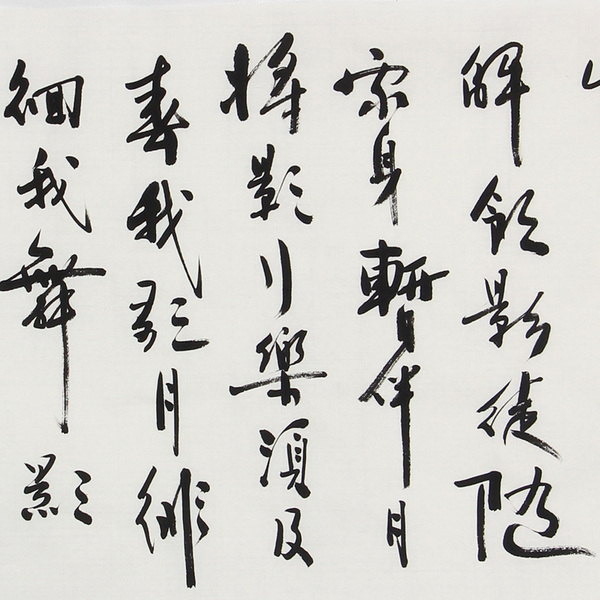 解飲影徒隨
我身暫伴月
將影行樂須及
春我歌月徘
徊我舞影